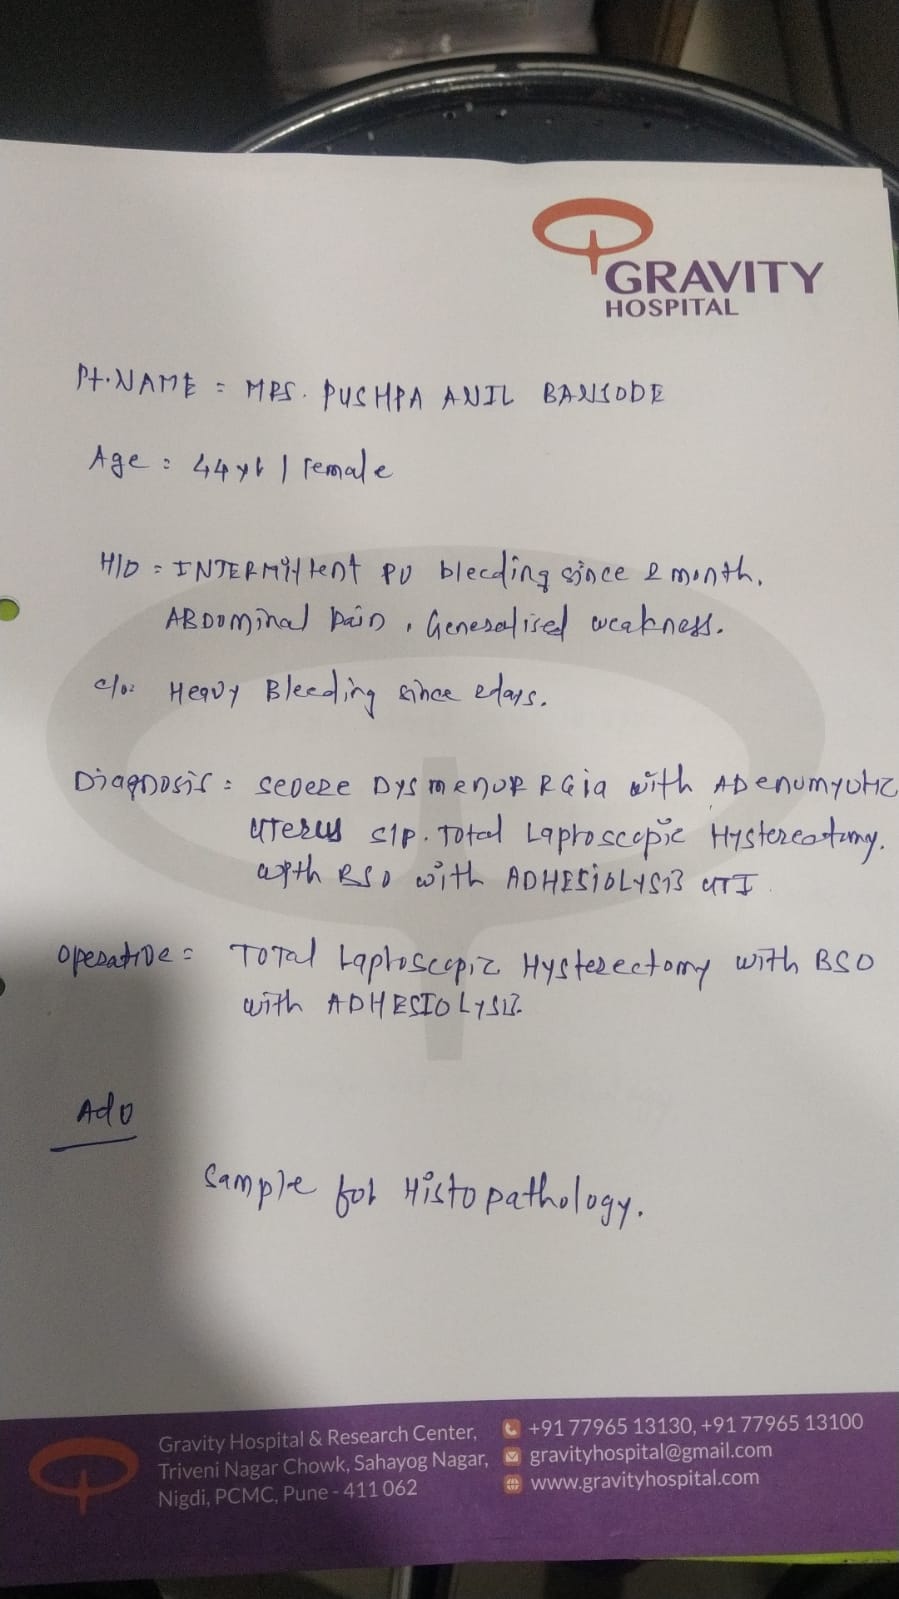 GRAVITY
HOSPITAL
Pt. NAME = MRS. PUSHPA ANIL BANSODE
Age : 44 yr | Female
H/O = INTERMittent PV bleeding since 2 month.
ABDominal Pain, Generalised weakness.
c/o: Heavy Bleeding since 2days.
Diagnosis : SEVERE DysmenoRRGia with ADenomyotic
uterus S/P. Total Laproscopic Hysterectomy.
with BSO with ADHESiOLYSIS UTI.
Operative = TOTAL Laproscopic Hysterectomy with BSO
with ADHESIOLYSIS.
Adv
Sample for Histopathology.
Gravity Hospital & Research Center,
Triveni Nagar Chowk, Sahayog Nagar,
Nigdi, PCMC, Pune - 411 062
+91 77965 13130, +91 77965 13100
gravityhospital@gmail.com
www.gravityhospital.com